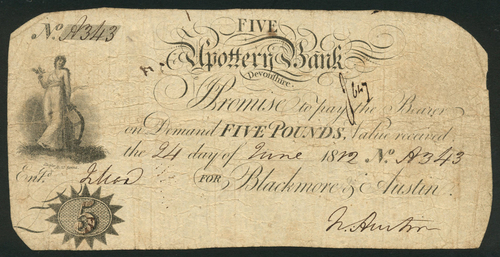 FIVE
No. A343
Upottery Bank
Devonshire.
I Promise to pay the Bearer
on Demand FIVE POUNDS, Value received
the 24 day of June 1812 No. A343
Entd.
FOR Blackmore & Austin
5
N Austin